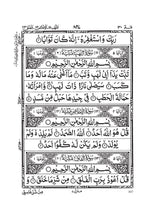 رَبِّكَ وَاسْتَغْفِرْهُ إِنَّهُ كَانَ تَوَّابًا
بِسْمِ اللَّهِ الرَّحْمَٰنِ الرَّحِيمِ
تَبَّتْ يَدَا أَبِي لَهَبٍ وَتَبَّ مَا أَغْنَىٰ عَنْهُ مَالُهُ وَمَا
كَسَبَ سَيَصْلَىٰ نَارًا ذَاتَ لَهَبٍ وَامْرَأَتُهُ
حَمَّالَةَ الْحَطَبِ فِي جِيدِهَا حَبْلٌ مِّن مَّسَدٍ
بِسْمِ اللَّهِ الرَّحْمَٰنِ الرَّحِيمِ
قُلْ هُوَ اللَّهُ أَحَدٌ اللَّهُ الصَّمَدُ لَمْ يَلِدْ وَلَمْ
يُولَدْ وَلَمْ يَكُن لَّهُ كُفُوًا أَحَدٌ
بِسْمِ اللَّهِ الرَّحْمَٰنِ الرَّحِيمِ
قُلْ أَعُوذُ بِرَبِّ الْفَلَقِ مِن شَرِّ مَا خَلَقَ